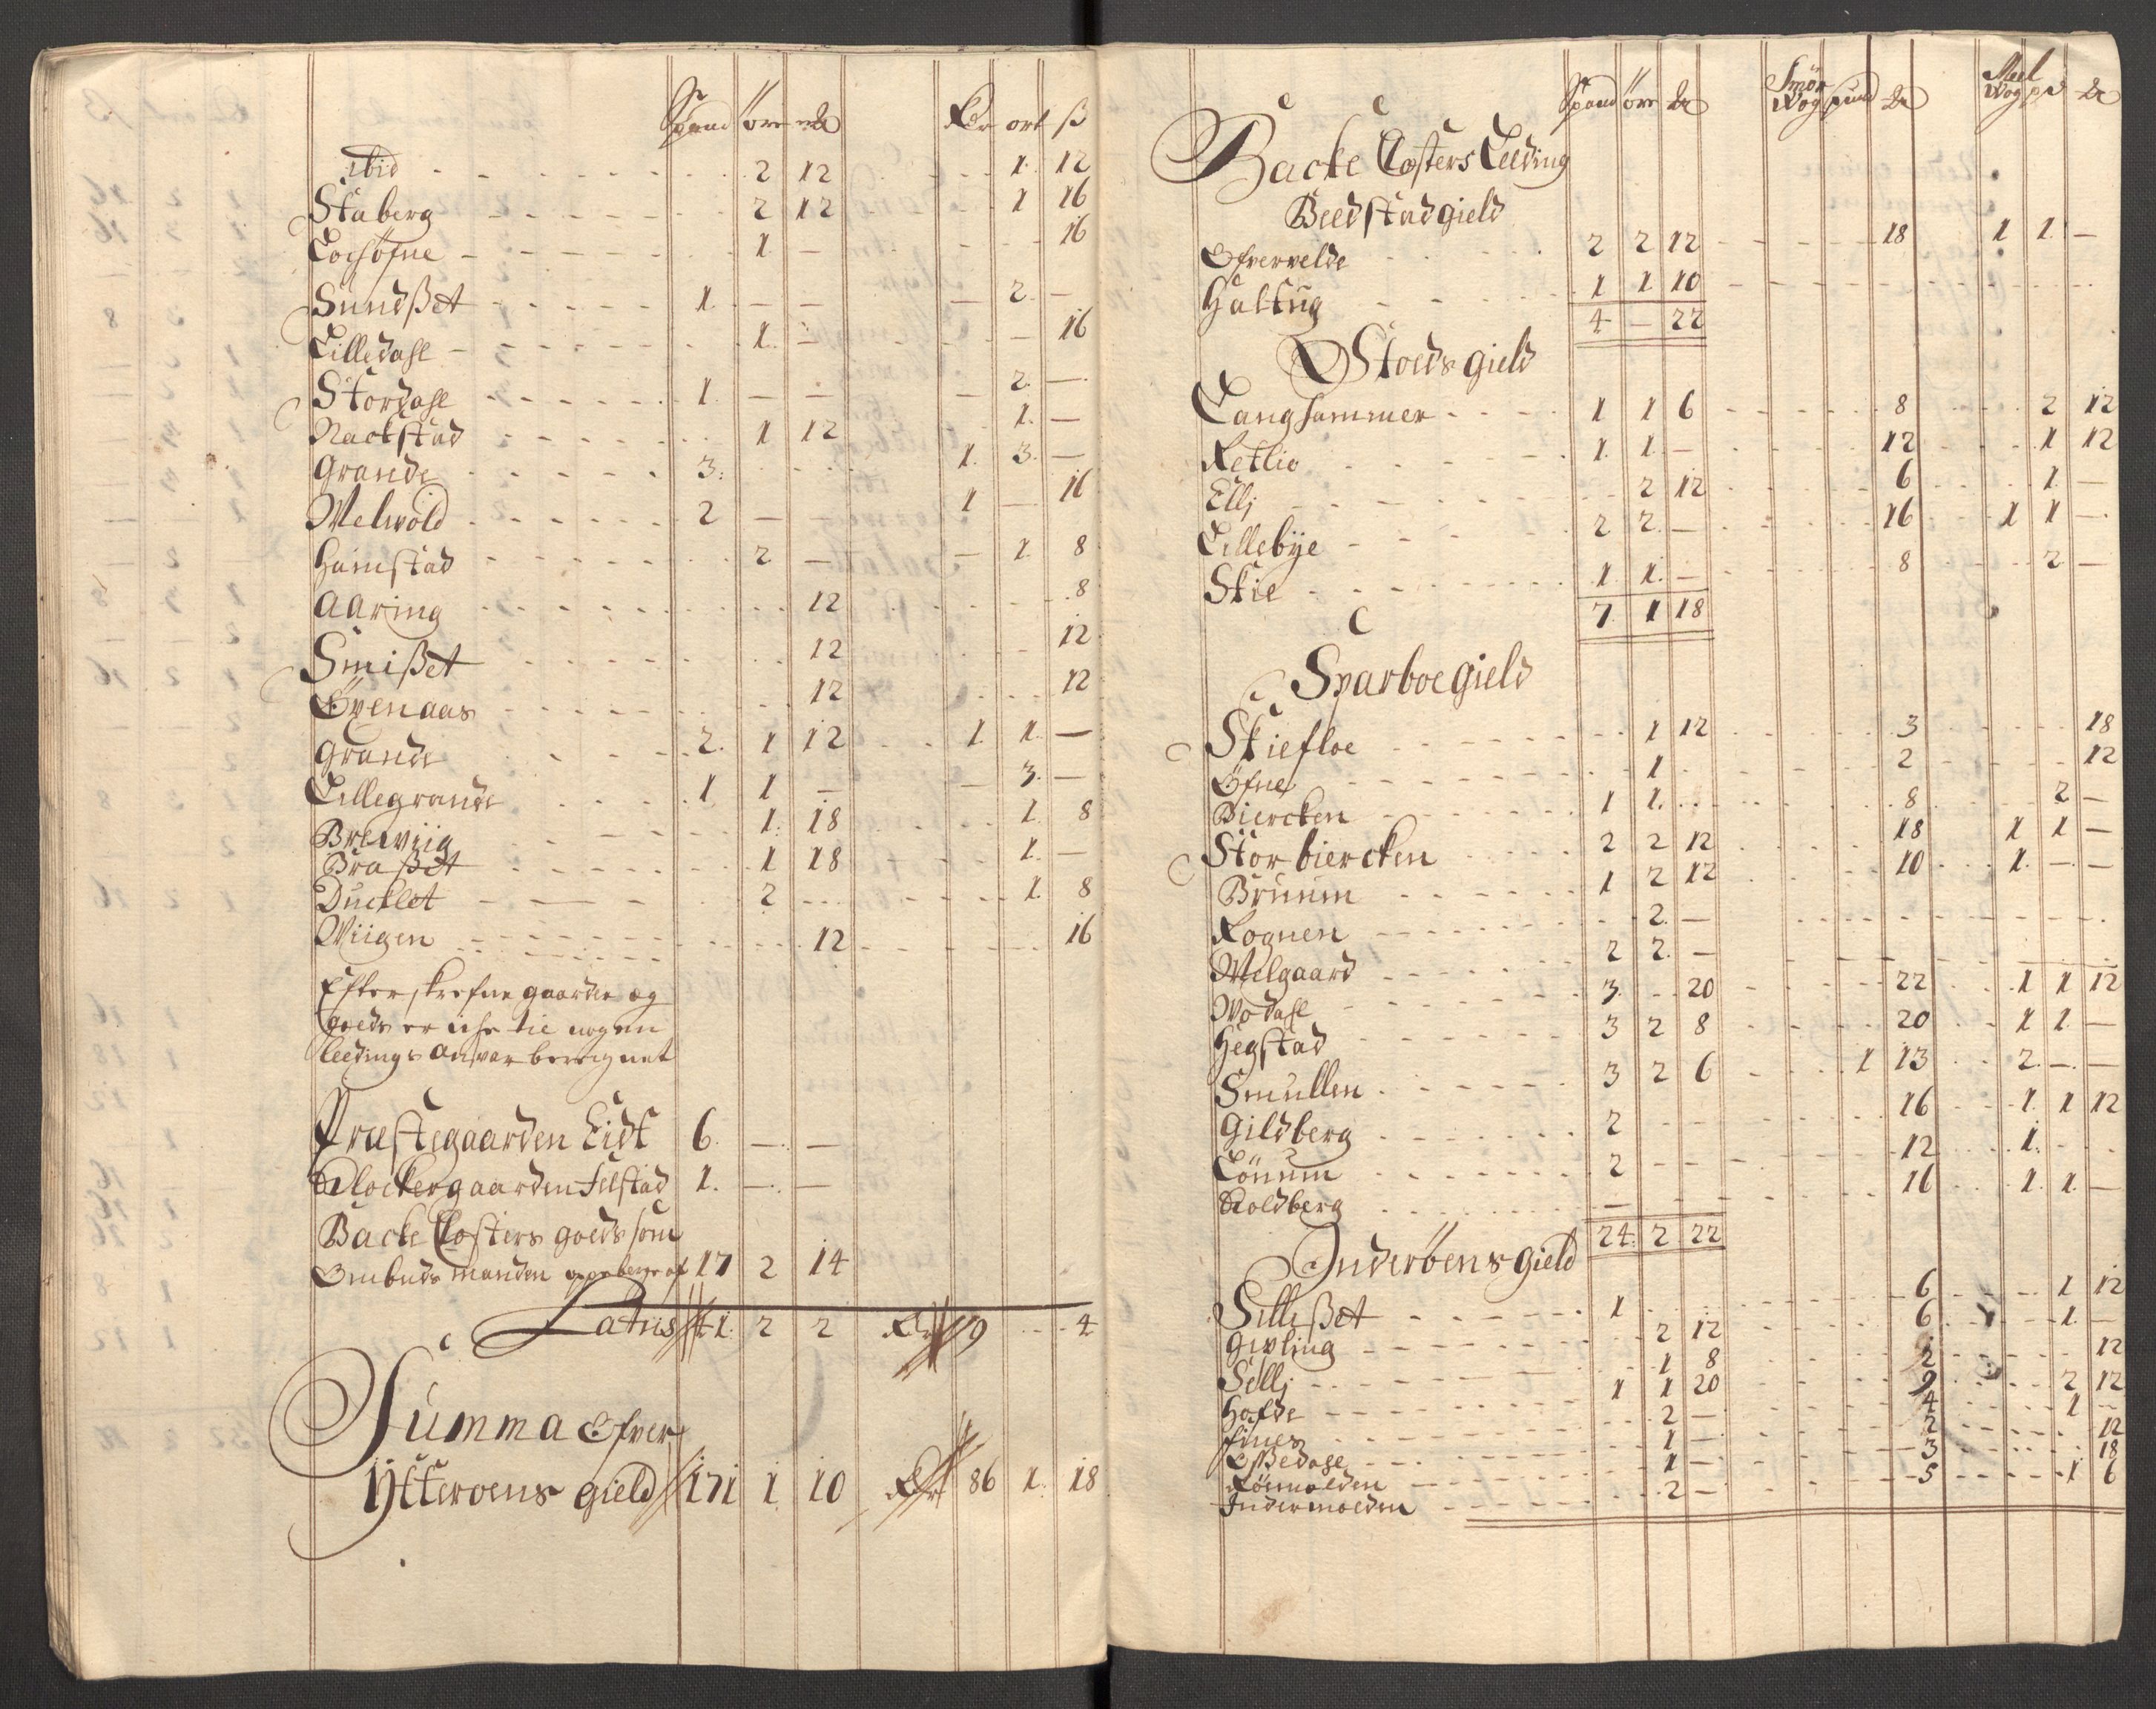 Spand öre Rdr ort ß
ibid 2 12 1. 12
Staberg 2 12 1 16
Lochöfne 1. — 16
Sundßet 1. — — — 2. —
Lilledahl 1. — — 16
Stordahl 1. — — — 2. —
Nackstad 1 12 1. —
Grande 3: 1. 3. —
Melwold 2 — — 1 — 16
Hamstad 2 — — 1. 8
Aaring 12 8
Smißet 12 12
Öyenaas 12 12
Grande 2. 1 12 1. 1. —
Lillegrande 1 1 — — 3. —
Brewiig 1. 18 1. 8
Braßet 1 18 1. —
Ducklet 2 1. 8
Wiigen 12 16
Efterskrefne gaarder og
goeds er iche til nogen
leedings
Præstegaarden Eidt 6. — —
Klockergaarden Filstad 1. — —
Backe Closters goeds som
Ombudsmanden oppebærer af 17 2 14
Latus 41. 2 2 Rdr 19 4
Summa Ofver
Ytteroens gield 171 1 10 Rdr 86 1. 18
Spand öre Smör Wog pund Meel Wog pd
Backe Closters Leeding
Beedstad gield
Ofvervelde 2 2 12 18 1 1. —
Haltug 1 1 10
4 — 22
Stoeds gield
Langhammer 1 1 6 8 2 12
Retlio 1. 1. — 12 1 12
Ellj 2 12 6 1. —
Lillebÿe 2 2. — 16 1 1 —
Skie 1. 1. — 8 2 —
7. 1 18
Sparboe gield
Skiefloe 1 12 3 18
Öfne 1 2 12
Biercken 1 1. 8 2 —
Storbiercken 2 2 12 18 1 1 —
Bruum 1 2 12 10 1. — —
Rognen 2. —
Melgaard 2 2. —
Wodahl 3. 20 22 1 1 12
Hegstad 3 2 8 20 1 1. —
Smullen 3 2 6 1 13 2. — —
Gildberg 2 16 1. 1 12
Lönum 2 12 1.
Koldberg — 16 1. 1. —
24. 2 22
Inderöens gield
Sillißet 1 6 1 12
Gipling 2 12 6 1. —
Sillj 1 8 2 12
Hofde 1 1 20 9 2 12
Fines 2 — 4 1 —
1 — 2 12
Röemolden 1 — 3 18
Indermolden 2 — 5 1 6